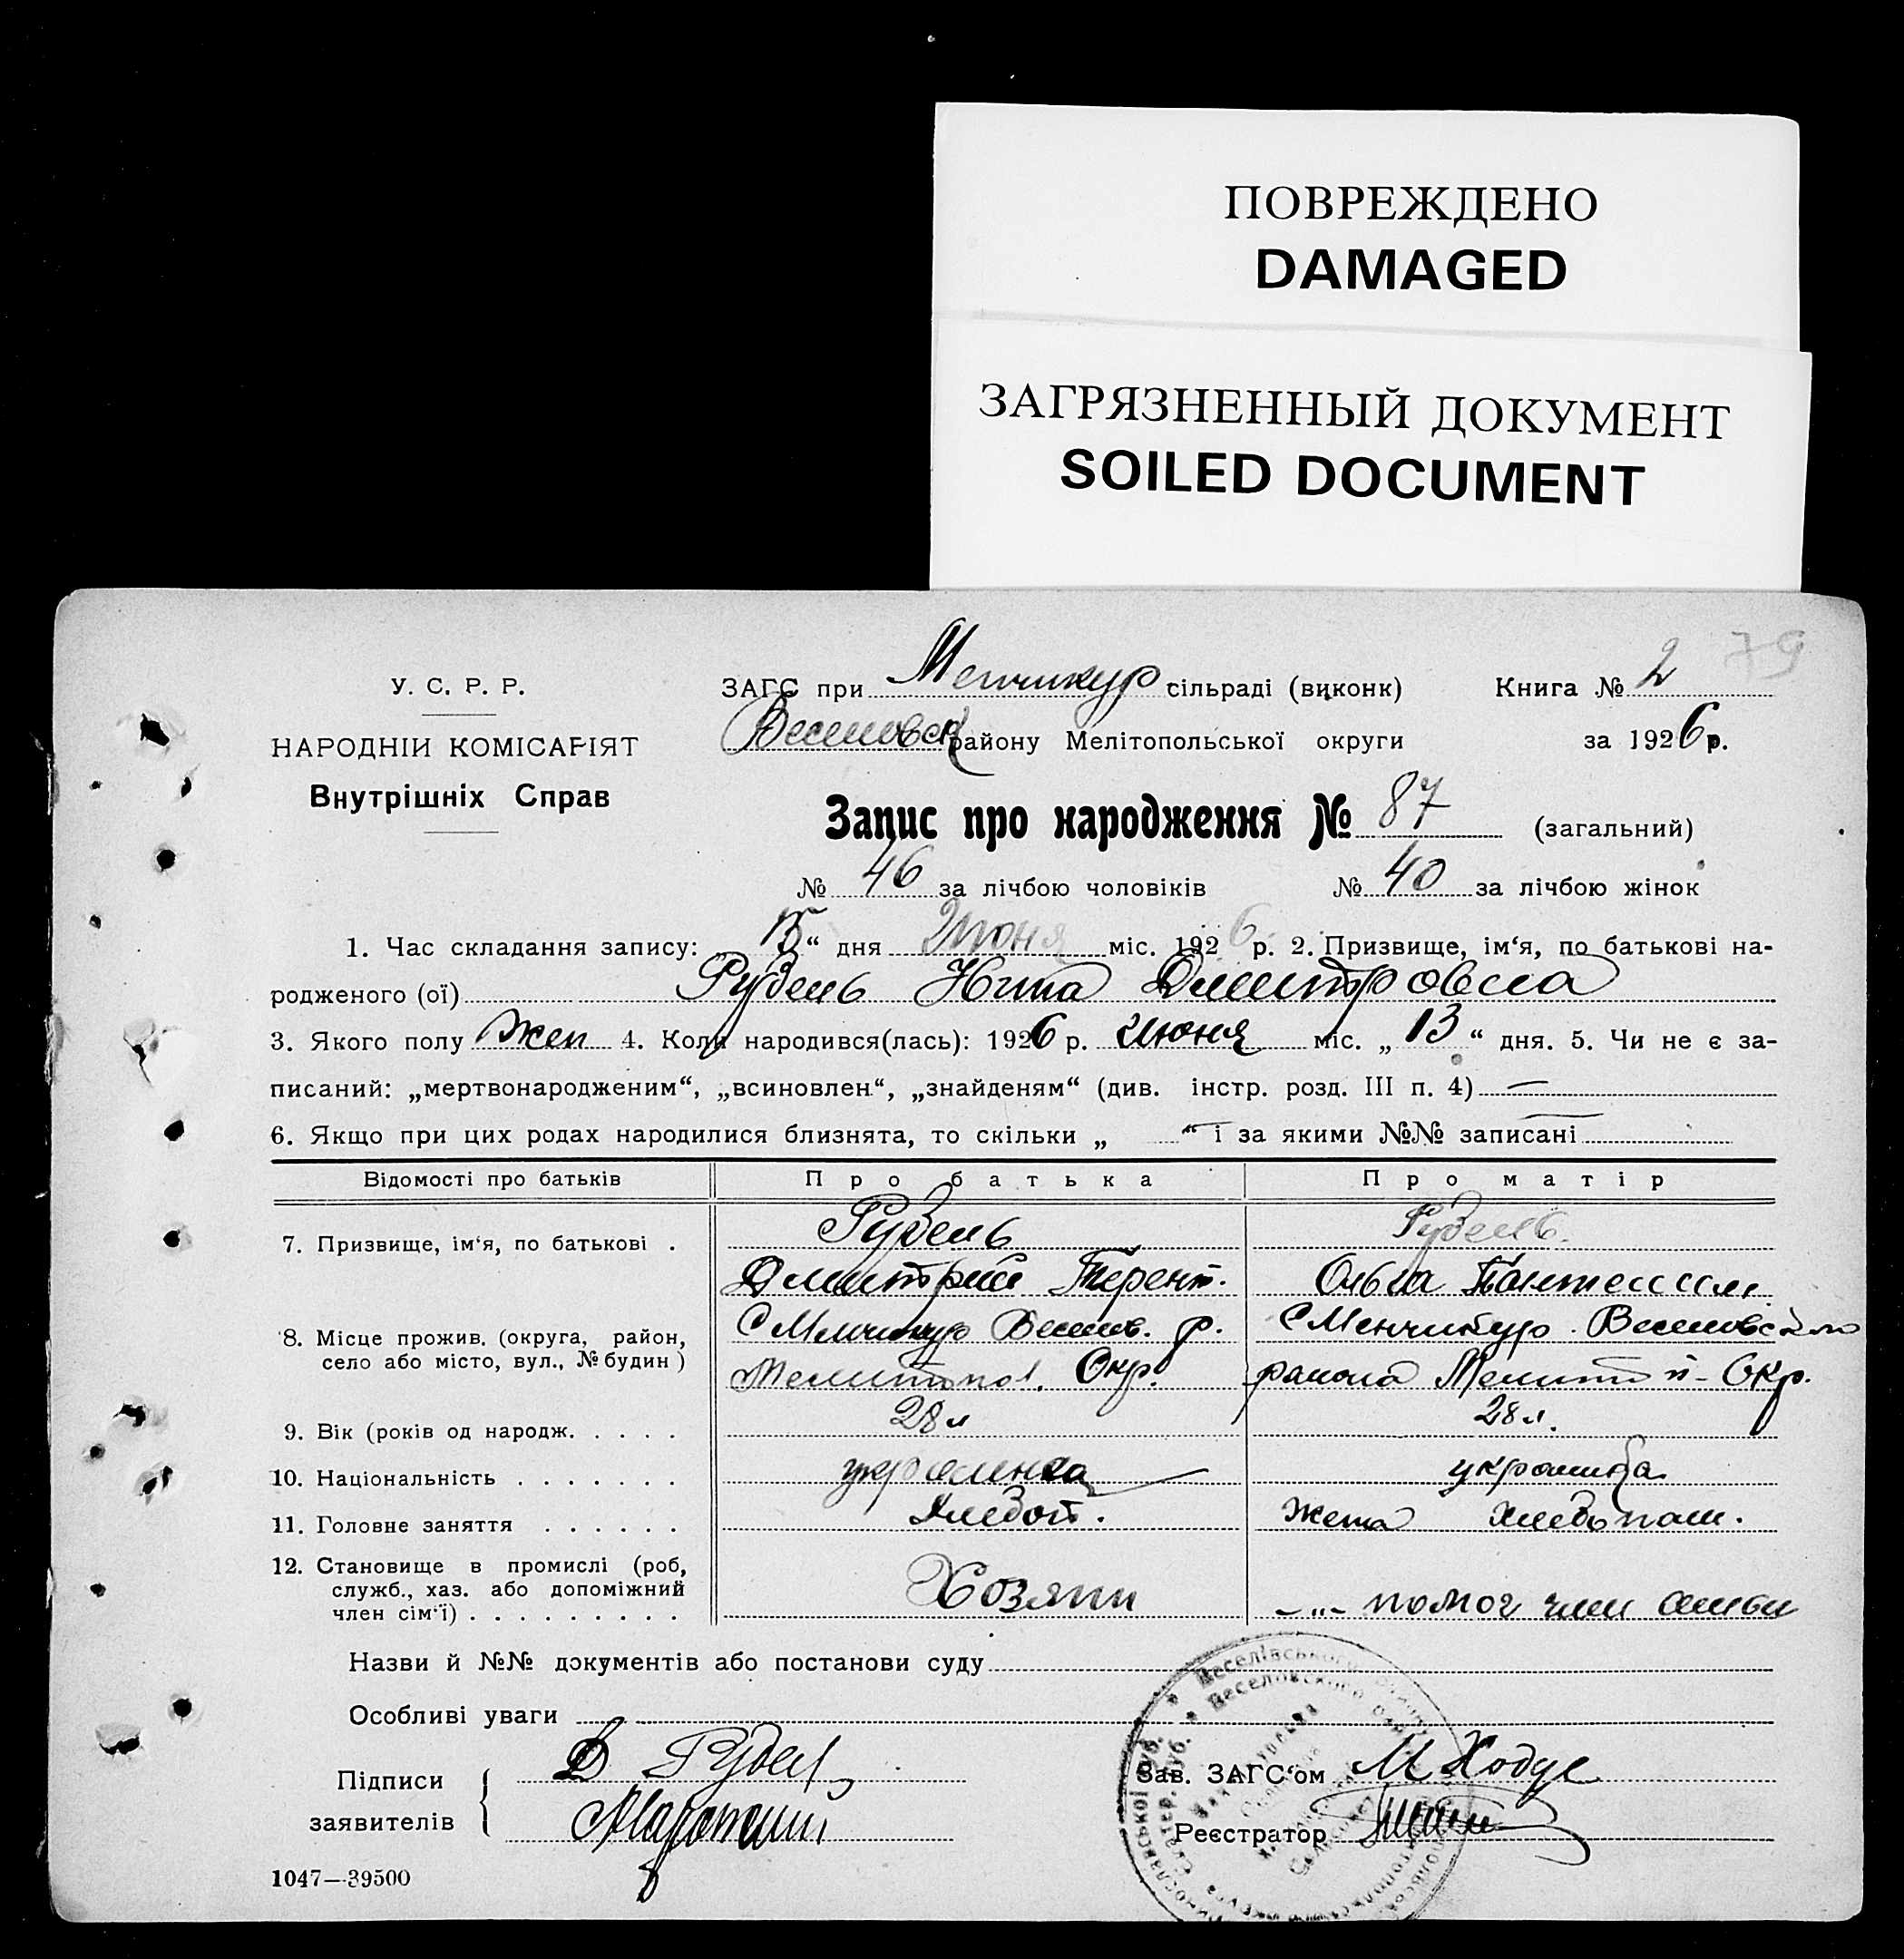 ПОВРЕЖДЕНО
DAMAGED
ЗАГРЯЗНЕННЫЙ ДОКУМЕНТ
SOILED DOCUMENT
79
У. С. Р. Р.
НАРОДНІЙ КОМІСАРІЯТ
Внутрішніх Справ
ЗАГС при Менчикур сільраді (виконк) Книга № 2
Веселовск району Мелітопольської округи за 1926 р.
Запис про народження № 87 (загальний)
№ 46 за лічбою чоловіків № 40 за лічбою жінок
1. Час складання запису: „15“ дня Июня міс. 1926 р. 2. Призвище, ім‘я, по батькові на-
родженого (ої) Рубель Нина Дмитровна
3. Якого полу жен 4. Коли народився(лась): 1926 р. Июня міс. „13“ дня. 5. Чи не є за-
писаний: „мертвонародженим“, „всиновлен“, „знайденям“ (див. інстр. розд. III п. 4) —
6. Якщо при цих родах народилися близнята, то скільки „ —“ і за якими №№ записані —
Відомості про батьків Про батька Про матір
7. Призвище, ім‘я, по батькові . Рубель Рубель
Дмитрий Терент. Ольга
8. Місце прожив. (округа, район, село або місто, вул., № будин) С Менчикур Веселов. р. С Менчикур Веселовского
Мелитопол. Окр. района Мелитоп Окр.
9. Вік (років од народж. . . . . 28 л 28 л.
10. Національність . . . . . . . украинец украинка
11. Головне заняття . . . . . . Хлебоп. Жена Хлебопаш.
12. Становище в промислі (роб, служб., хаз. або допоміжний член сім‘ї) . . . . . . . . . Хозяин —"— помог член семьи
Назви й №№ документів або постанови суду
Особливі уваги
Підписи заявителів Д Рубель
Зав. ЗАГС‘ом М Ходус
Реєстратор
1047—39500